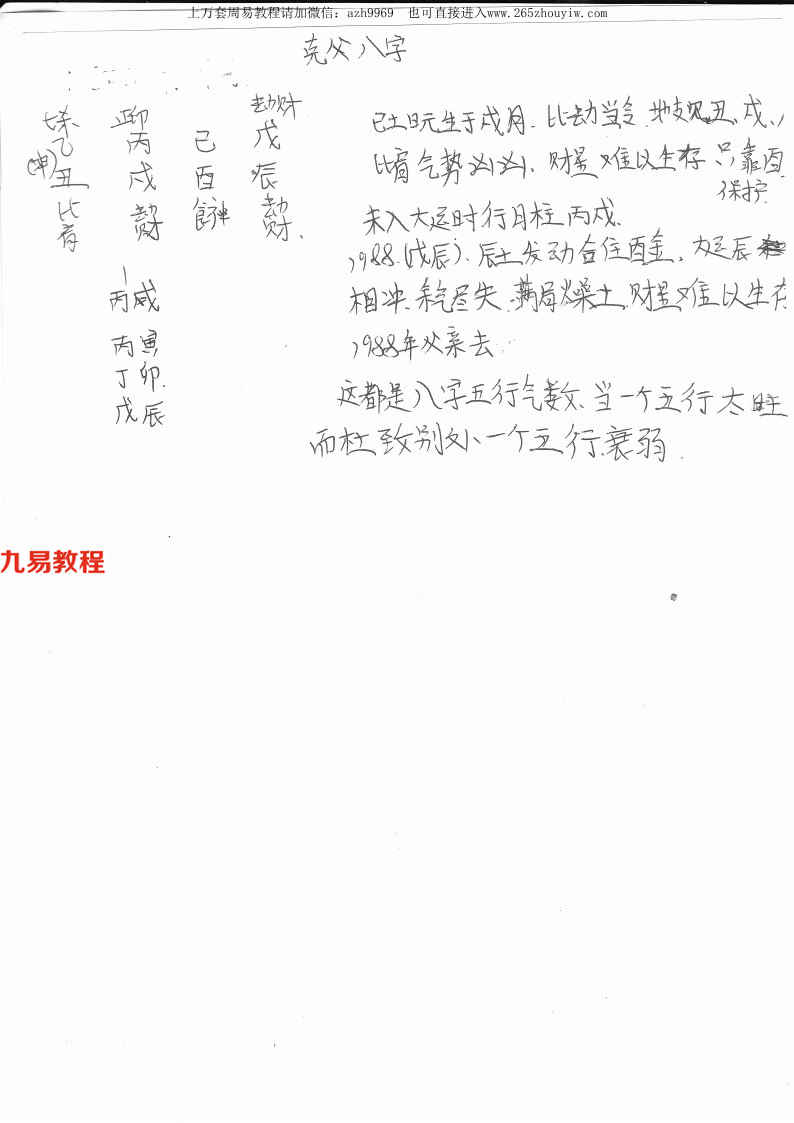 上万套周易教程请加微信：azh9969 也可直接进入www.265zhouyiw.com
克父八字
劫财
杀 印 戊
乙 丙 己
(坤) 丑 戌 酉 辰
比肩 劫财 食神 劫财.
己土日元生于戌月. 比劫当令. 地支见丑、戌、
比肩气势汹汹. 财星难以生存 只靠酉
保护
未入大运时行月柱丙戌.
1988.(戊辰). 辰土发动合住酉金, 大运辰
相冲. 余气尽失. 满局燥土. 财星难以生存
1988年父亲去.
丙戌
丙寅
丁卯.
戊辰
这都是八字五行气数、当一个五行太旺
而杜致别外一个五行衰弱.
九易教程